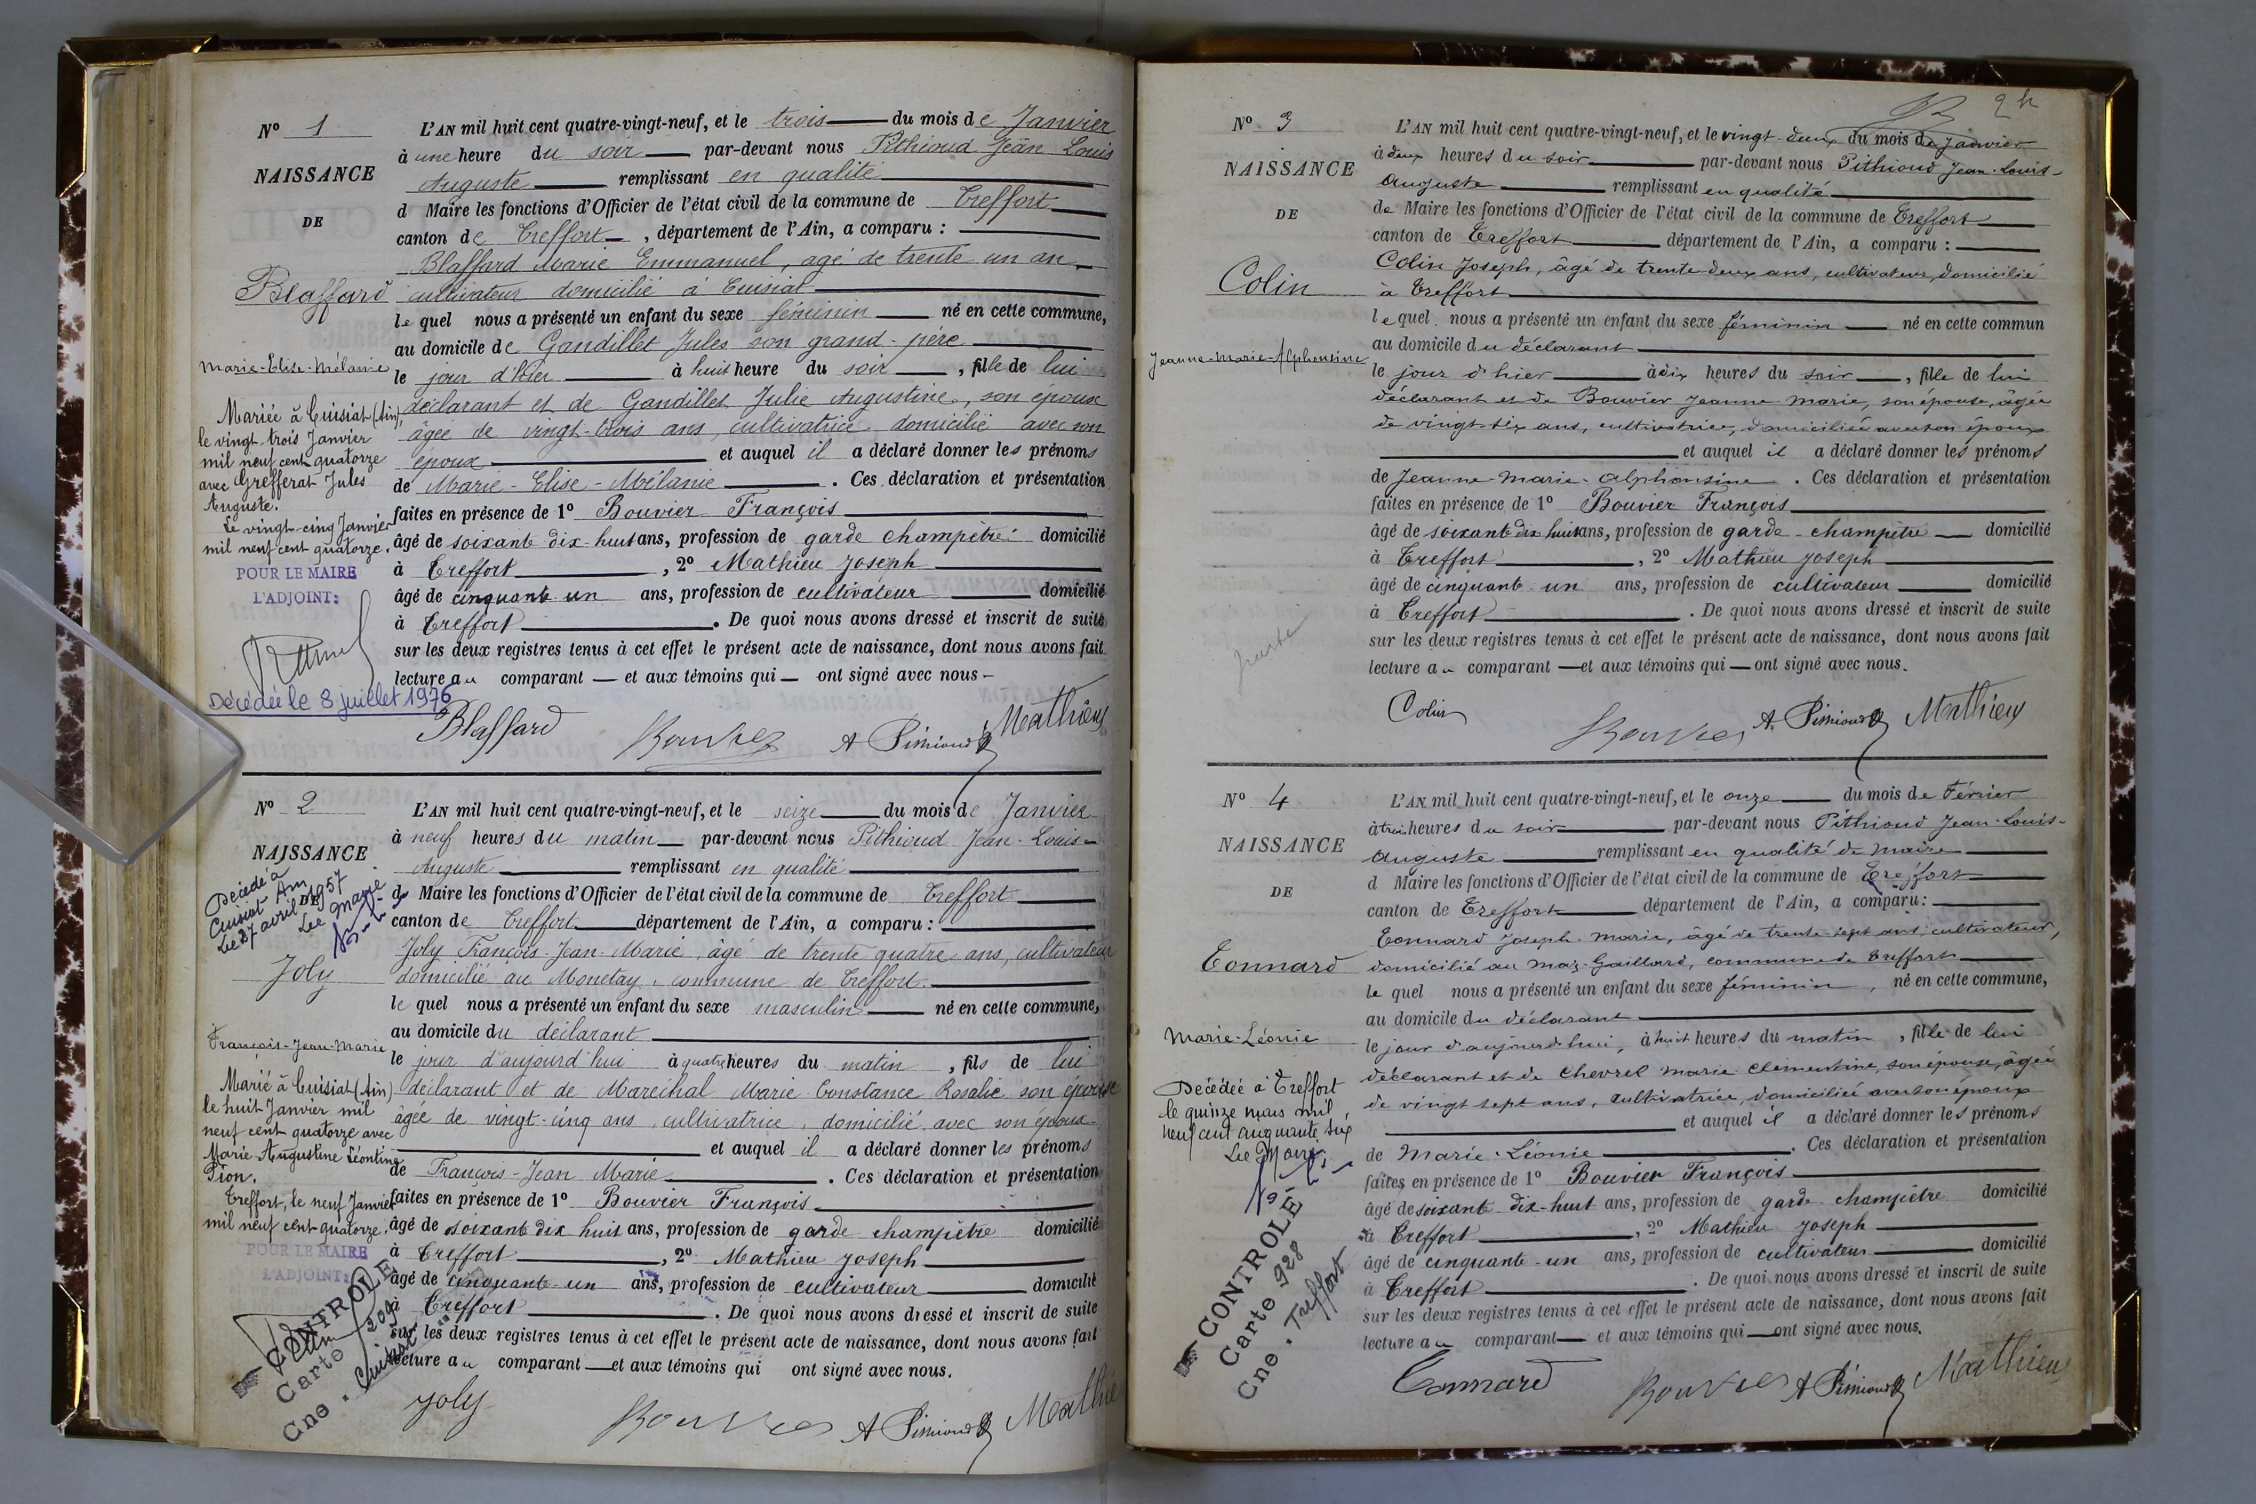 N° 1
NAISSANCE
DE
Blaffard
Marie-Elise-Mélanie
Mariée à Cuisiat (Ain),
le vingt-trois Janvier
mil neuf cent quatorze
avec Grefferat Jules
Auguste.
Le vingt-cinq Janvier
mil neuf cent quatorze.
POUR LE MAIRE
L'ADJOINT:
Décédée le 8 juillet 1976
L'AN mil huit cent quatre-vingt-neuf, et le trois du mois de Janvier
à une heure du soir par-devant nous Pithioud Jean Louis
Auguste remplissant en qualité
d Maire les fonctions d'Officier de l'état civil de la commune de Treffort
canton de Treffort, département de l'Ain, a comparu :
Blaffard Marie Emmanuel, âgé de trente un an,
cultivateur domicilié à Cuisiat
lequel nous a présenté un enfant du sexe féminin né en cette commune,
au domicile de Gandillet Jules son grand-père
le jour d'hier à huit heure du soir, fille de lui
déclarant et de Gandillet Julie Augustine, son épouse
âgée de vingt-trois ans, cultivatrice domicilie avec son
époux et auquel il a déclaré donner les prénoms
de Marie-Elise-Mélanie. Ces déclaration et présentation
faites en présence de 1° Bouvier François
âgé de soixante dix-huit ans, profession de garde champêtre domicilié
à Treffort, 2° Mathieu Joseph
âgé de cinquante un ans, profession de cultivateur domicilié
à Treffort. De quoi nous avons dressé et inscrit de suite
sur les deux registres tenus à cet effet le présent acte de naissance, dont nous avons fait
lecture au comparant et aux témoins qui ont signé avec nous
Blaffard Bouvier A Pithioud Mathieu
N° 2
NAISSANCE
DE
Décédé à
Cuisiat Ain
Le 27 avril 1957
Le Maire
Joly
François-Jean-Marie
Marié à Cuisiat (Ain)
le huit Janvier mil
neuf cent quatorze avec
Marie-Augustine Léontine
Pion.
Treffort, le neuf Janvier
mil neuf cent quatorze.
POUR LE MAIRE
L'ADJOINT:
CONTROLE
Carte 209
Cne. Cuisiat
L'AN mil huit cent quatre-vingt-neuf, et le seize du mois de Janvier
à neuf heures du matin par-devant nous Pithioud Jean-Louis
Auguste remplissant en qualité
de Maire les fonctions d'Officier de l'état civil de la commune de Treffort
canton de Treffort département de l'Ain, a comparu :
Joly François-Jean-Marie, âgé de trente quatre ans, cultivateur
domicilié au Monetay, commune de Treffort
lequel nous a présenté un enfant du sexe masculin né en cette commune,
au domicile du déclarant
le jour d'aujourd'hui à quatre heures du matin, fils de lui
déclarant et de Maréchal Marie Constance Rosalie son épouse
âgée de vingt-cinq ans, cultivatrice, domicilié avec son époux
et auquel il a déclaré donner les prénoms
de François-Jean Marie. Ces déclaration et présentation
faites en présence de 1° Bouvier François
âgé de soixante dix huit ans, profession de garde champêtre domicilié
à Treffort, 2° Mathieu Joseph
âgé de cinquante-un ans, profession de cultivateur domicilié
à Treffort. De quoi nous avons dressé et inscrit de suite
sur les deux registres tenus à cet effet le présent acte de naissance, dont nous avons fait
lecture au comparant et aux témoins qui ont signé avec nous.
Joly Bouvier A Pithioud Mathieu
2
N° 3
NAISSANCE
DE
Colin
Jeanne-Marie-Alphonsine
L'AN mil huit cent quatre-vingt-neuf, et le vingt-deux du mois de Janvier
à deux heures du soir par-devant nous Pithioud Jean-Louis-
Auguste remplissant en qualité
de Maire les fonctions d'Officier de l'état civil de la commune de Treffort
canton de Treffort département de l'Ain, a comparu :
Colin Joseph, âgé de trente-deux ans, cultivateur, domicilié
à Treffort
lequel nous a présenté un enfant du sexe féminin né en cette commun
au domicile du déclarant
le jour d'hier à dix heures du soir, fille de lui
déclarant et de Bouvier Jeanne-Marie, son épouse, âgée
de vingt-six ans, cultivatrice, domiciliée avec son époux
et auquel il a déclaré donner les prénoms
de Jeanne-Marie-Alphonsine. Ces déclaration et présentation
faites en présence de 1° Bouvier François
âgé de soixante dix huit ans, profession de garde-champêtre domicilié
à Treffort, 2° Mathieu Joseph
âgé de cinquante-un ans, profession de cultivateur domicilié
à Treffort. De quoi nous avons dressé et inscrit de suite
sur les deux registres tenus à cet effet le présent acte de naissance, dont nous avons fait
lecture au comparant et aux témoins qui ont signé avec nous.
Colin Bouvier A. Pithioud Mathieu
N° 4
NAISSANCE
DE
Tonnard
Marie-Léonie
Décédée à Treffort
le quinze mars mil
neuf cent cinquante six
Le Maire
CONTROLE
Carte 928
Cne. Treffort
L'AN mil huit cent quatre-vingt-neuf, et le onze du mois de Février
à trois heures du soir par-devant nous Pithioud Jean-Louis-
Auguste remplissant en qualité de Maire
d Maire les fonctions d'Officier de l'état civil de la commune de Treffort
canton de Treffort département de l'Ain, a comparu :
Tonnard Joseph-Marie, âgé de trente-sept ans, cultivateur,
domicilié au Maz-Gaillard, commune de Treffort
lequel nous a présenté un enfant du sexe féminin, né en cette commune,
au domicile du déclarant
le jour d'aujourd'hui, à huit heures du matin, fille de lui
déclarant et de Chevrel Marie Clémentine, son épouse, âgée
de vingt sept ans, cultivatrice, domiciliée avec son époux
et auquel il a déclaré donner les prénoms
de Marie-Léonie. Ces déclaration et présentation
faites en présence de 1° Bouvier François
âgé de soixante-dix-huit ans, profession de garde champêtre domicilié
à Treffort, 2° Mathieu Joseph
âgé de cinquante-un ans, profession de cultivateur domicilié
à Treffort. De quoi nous avons dressé et inscrit de suite
sur les deux registres tenus à cet effet le présent acte de naissance, dont nous avons fait
lecture au comparant et aux témoins qui ont signé avec nous.
Tonnard Bouvier A Pithioud Mathieu